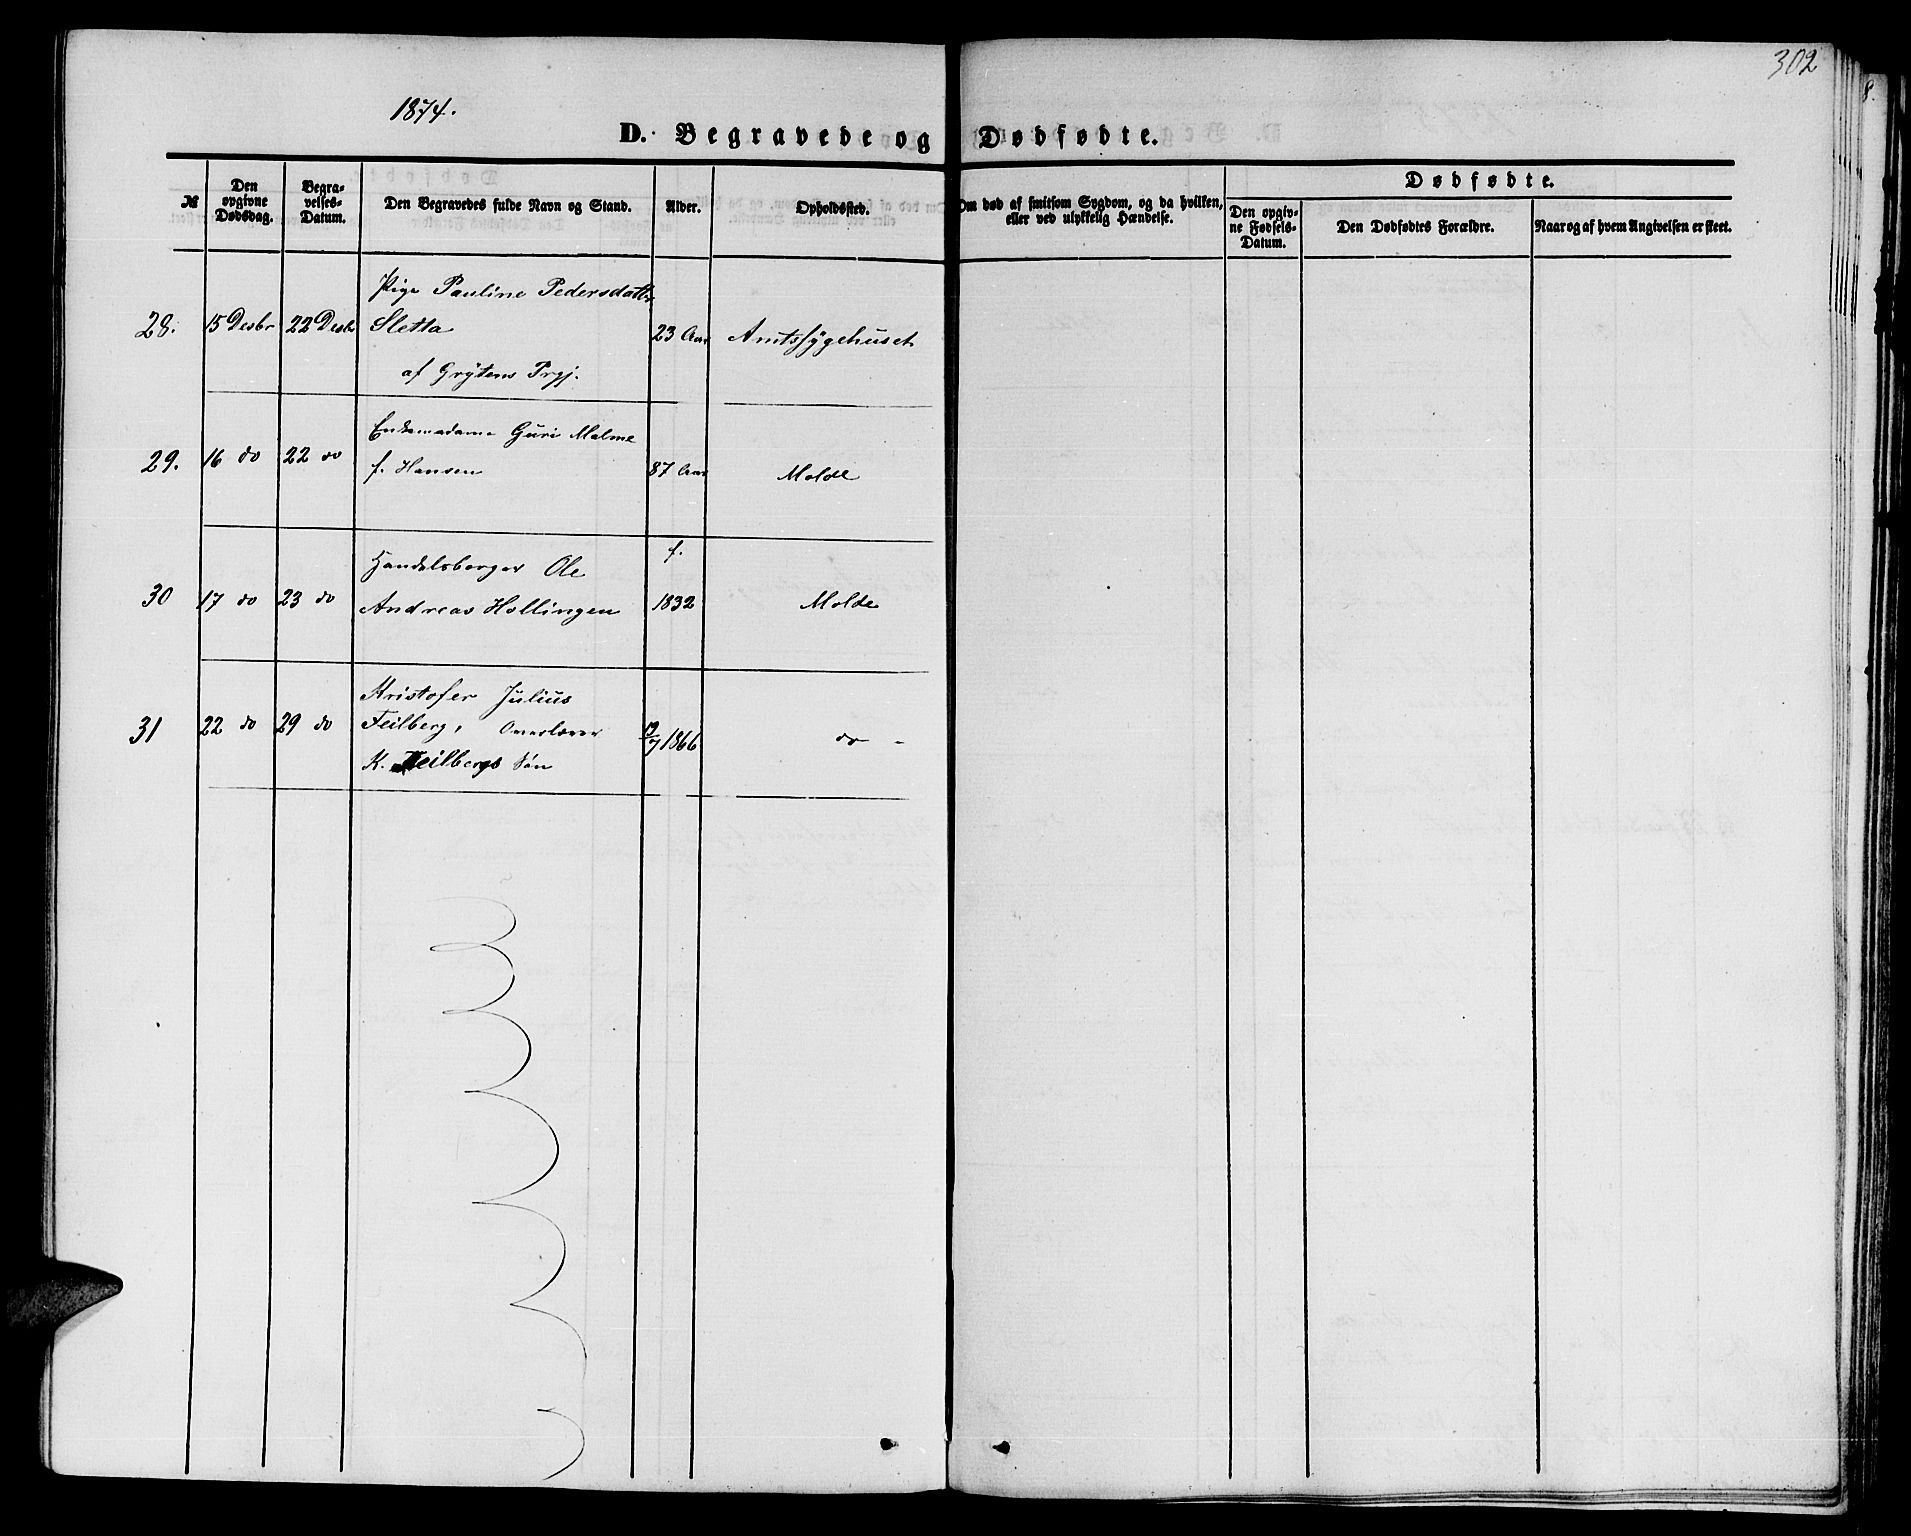 302
8.
1874.
D. Begravede og Dødfødte.
№
Den opgivne Dødsdag.
Begravelses-Datum.
Den Begravedes fulde Navn og Stand.
Alder.
Opholdssted.
Om død af smitsom Sygdom, og da hvilken, eller ved ulykkelig Hændelse.
Dødfødte.
Den opgivne Fødsels-Datum.
Den Dødfødtes Forældre.
Naar og af hvem Angivelsen er skeet.
28. 15 Desbr 22 Desbr Pige Pauline Pedersdattr
Sletta 23 Aar Amtssygehuset
af Grytens Prgj.
29. 16 do 22 do Enkemadame Guri Malme
f. Hansen 87 Aar Molde
30 17 do 23 do Handelsborger Ole f.
Andreas Hollingen 1832 Molde
31 22 do 29 do Kristofer Julius
Feilberg, Overlærer 1866 do -
K. Feilbergs Søn